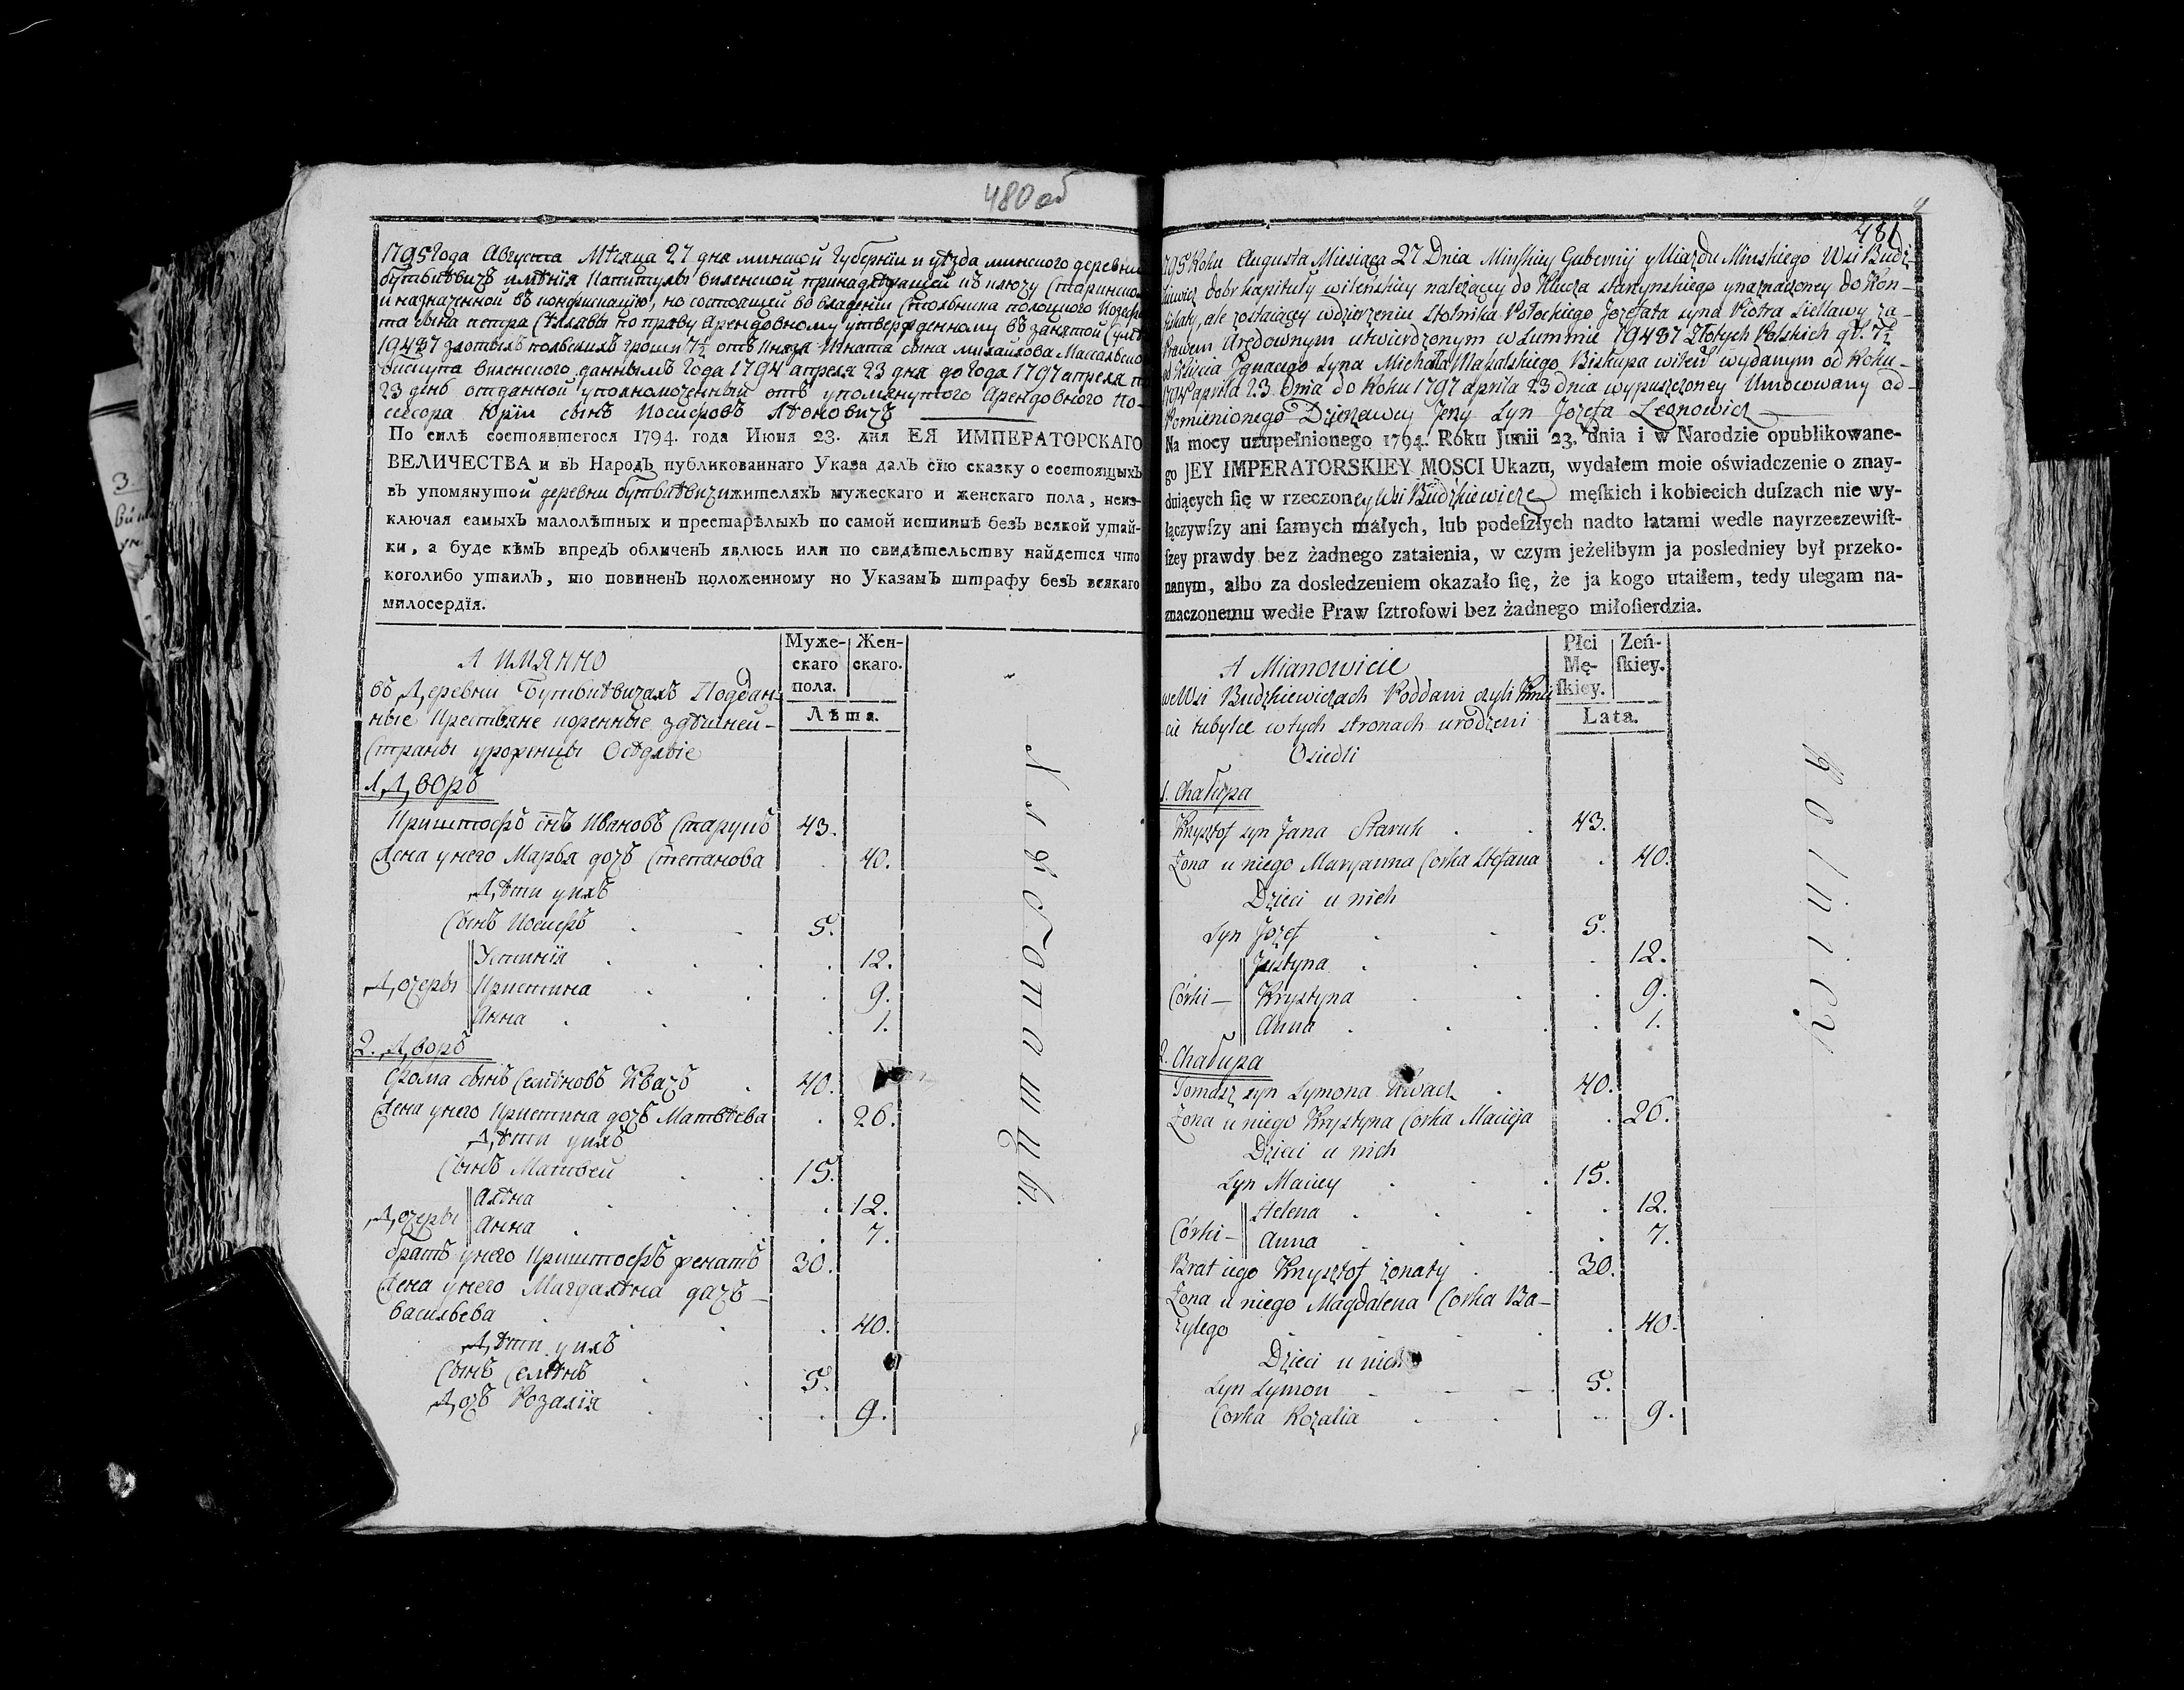 480 об
1795 Года Августа Мѣсяца 27 дня минской Губернiи и уѣзда минского деревни
имѣнiя Капитулы виленской принадлежащей къ ключу Старинско
и назначенной въ конфискацiю, но состоящей во владѣнiи Стольника полоцкого Иозафа
та сына петра Сѣлявы по праву Арендовному утвержденному въ занятой Сумѣ
19487 злотыхъ польскихъ грошей 7½ отъ Князя Игната сына михайлова Масальско
бискупа виленского даннымъ Года 1794 апреля 23 дня до Года 1797 апреля
23 день отданной уполномоченный отъ упомянутого Арендовного По-
сесора Юрiи сынъ Иосифовъ Лѣоновичъ
По силѣ состоявшегося 1794. года Июня 23. дня ЕЯ ИМПЕРАТОРСКАГО
ВЕЛИЧЕСТВА и въ Народъ публикованнаго Указа далъ сїю сказку о состоящыхъ
въ упомянутой деревни жителяхъ мужескаго и женскаго пола, неиз-
ключая самыхъ малолѣтныхъ и престарѣлыхъ по самой истиннѣ безъ всякой утай-
ки, а буде кѣмъ впредъ обличенъ явлюсь или по свидѣтельству найдется что
коголибо утаилъ, то повиненъ положенному по Указамъ штрафу безъ всякаго
милосердїя.
Муже-
скаго
пола.
Жен-
скаго.
Лѣта.
А имянно
въ Деревни Поддан-
ные Крестьяне коренные здѣшней
Страны уроженцы Осѣдлые
1. Дворъ
Криштофъ сынъ Ивановъ Старукъ 43.
Жена унего Марья дочь Степанова 40.
Дѣти уихъ
Сынъ Иосифъ 5.
Дочеры
Устинiя 12.
Кристина 9.
Анна 1.
2. Дворъ
Фома сынъ Семѣновъ Квачъ 40.
Жена унего Кристина дочь Матвѣева 26.
Дѣти уихъ
Сынъ Матвей 15.
Дочеры
Алѣна 12.
Анна 7.
братъ унего Криштофъ женатъ 30.
Жена унего Магдалѣна дочь
васильева 40.
Дѣти уихъ
Сынъ Семѣнъ 5.
Дочь Розалiя 9.
481
1795 Roku Augusta Miesiąca 27 Dnia Minskiey Gubernij y Uiazdu Minskiego Wsi Budź-
kiewicz Dobr kapituły wilenskiey należącey do Klucza starynskiego ynaznaczoney do Kon-
fiskaty, ale zostaiącey wdzierzeniu Stolnika Połockiego Jozefata syna Piotra Siellawy za
Prawem Arędownym utwierdzonym w Summie 19487 Złotych Polskich gr. 7½
od Xięcia Jgnacego Syna Michała Masalskiego Biskupa wileń wydanym od Roku
1794 aprila 23 Dnia do Roku 1797 aprila 23 dnia wypuszczoney Umocowany od
Pomienionego Dzierzawcy Jerzy Syn Jozefa Leonowicz
Na mocy uzupełnionego 1794. Roku Junii 23. dnia i w Narodzie opublikowane-
go JEY IMPERATORSKIEY MOSCI Ukazu, wydałem moie oświadczenie o znay-
duiących ſię w rzeczoney Wsi Budźkiewicze męſkich i kobiecich duſzach nie wy-
łączywſzy ani ſamych małych, lub podeſzłych nadto latami wedle nayrzeczewiſt-
ſzey prawdy bez żadnego zataienia, w czym jeżelibym ja posledniey był przeko-
nanym, albo za dosledzeniem okazało ſię, że ja kogo utaiłem, tedy ulegam na-
znaczonemu wedle Praw ſztrofowi bez żadnego miłoſierdzia.
Płci
Mę-
ſkiey.
Zeń-
ſkiey.
Lata.
A Mianowicie
we Wsi Budźkiewiczach Poddani czyli Kmie
cie tubylce wtych stronach urodzeni
Osiedli
1. Chałupa
Krysztof syn Jana Staruk 43.
Zona u niego Maryanna Corka Stefana 40.
Dzieci u nich
Syn Jozef 5.
Córki
Justyna 12.
Krystyna 9.
Anna 1.
2. Chałupa
Tomasz syn Symona Kwacz 40.
Zona u niego Krystyna Corka Macieja 26.
Dzieci u nich
Syn Maciey 15.
Córki
Helena 12.
Anna 7.
Brat iego Krysztof żonaty 30.
Zona u niego Magdalena Corka Ba-
zylego 40.
Dzieci u nich
Syn Symon 5.
Corka Rozalia 9.